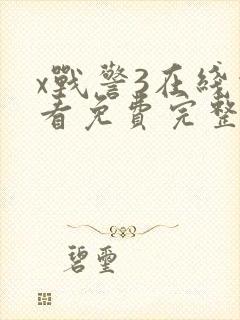 x戰警3在綫
看免費完整
碧璽